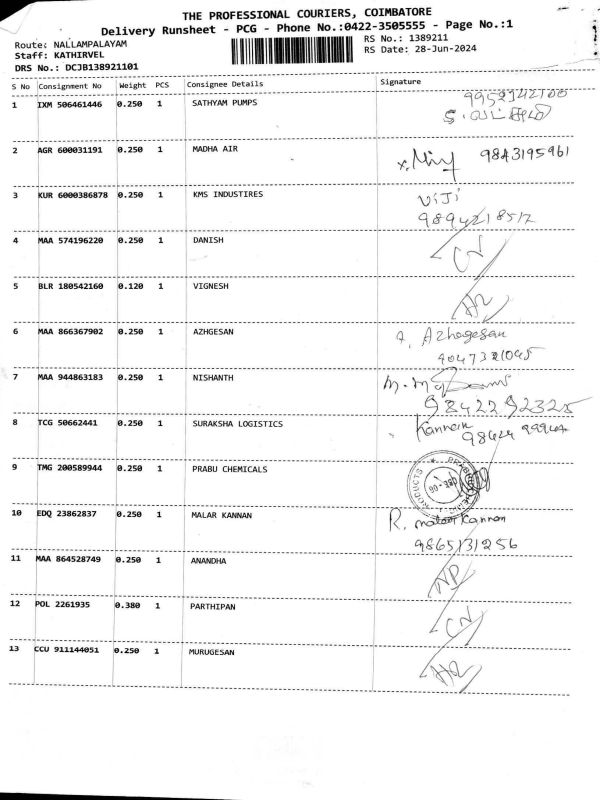 THE PROFESSIONAL COURIERS, COIMBATORE
Delivery Runsheet - PCG - Phone No.:0422-3505555 - Page No.:1
Route: NALLAMPALAYAM
RS No.: 1389211
Staff: KATHIRVEL
RS Date: 28-Jun-2024
DRS No.: DCJB138921101
S No Consignment No Weight PCS Consignee Details Signature
1 IXM 506461446 0.250 1 SATHYAM PUMPS
2 AGR 600031191 0.250 1 MADHA AIR 9843195961
3 KUR 6000386878 0.250 1 KMS INDUSTIRES ViJi
9894218512
4 MAA 574196220 0.250 1 DANISH CN
5 BLR 180542160 0.120 1 VIGNESH
6 MAA 866367902 0.250 1 AZHGESAN Azhagesan
9047321045
7 MAA 944863183 0.250 1 NISHANTH
9842292325
8 TCG 50662441 0.250 1 SURAKSHA LOGISTICS Kannan
9 TMG 200589944 0.250 1 PRABU CHEMICALS
10 EDQ 23862837 0.250 1 MALAR KANNAN R. malar Kannan
9865131256
11 MAA 864528749 0.250 1 ANANDHA NP
12 POL 2261935 0.380 1 PARTHIPAN CN
13 CCU 911144051 0.250 1 MURUGESAN